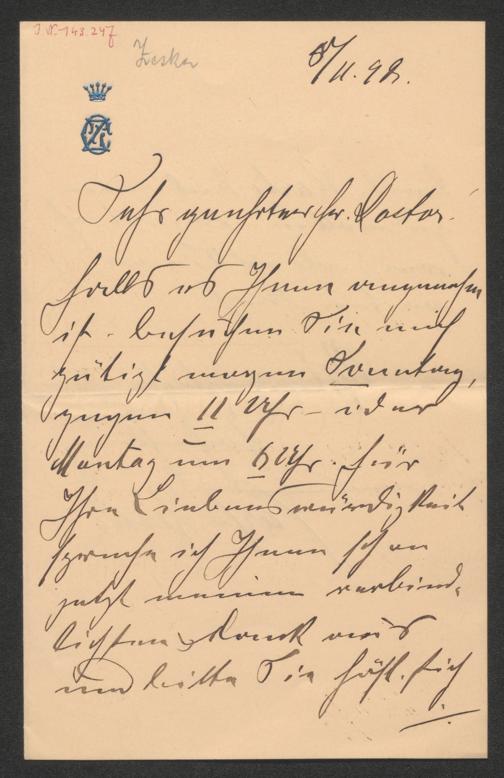 I.N. 143.247
Zeska
5/11. 92.
Sehr geehrter Hr. Doctor.
Falls es Ihnen angenehm
ist – besuchen Sie mich
gütigst morgen Sonntag,
gegen 11 Uhr – oder
Montag um 6 Uhr. Für
Ihre Liebenswürdigkeit
spreche ich Ihnen schon
jetzt meinen verbind-
lichsten Dank aus
und bitte Sie höfl. sich